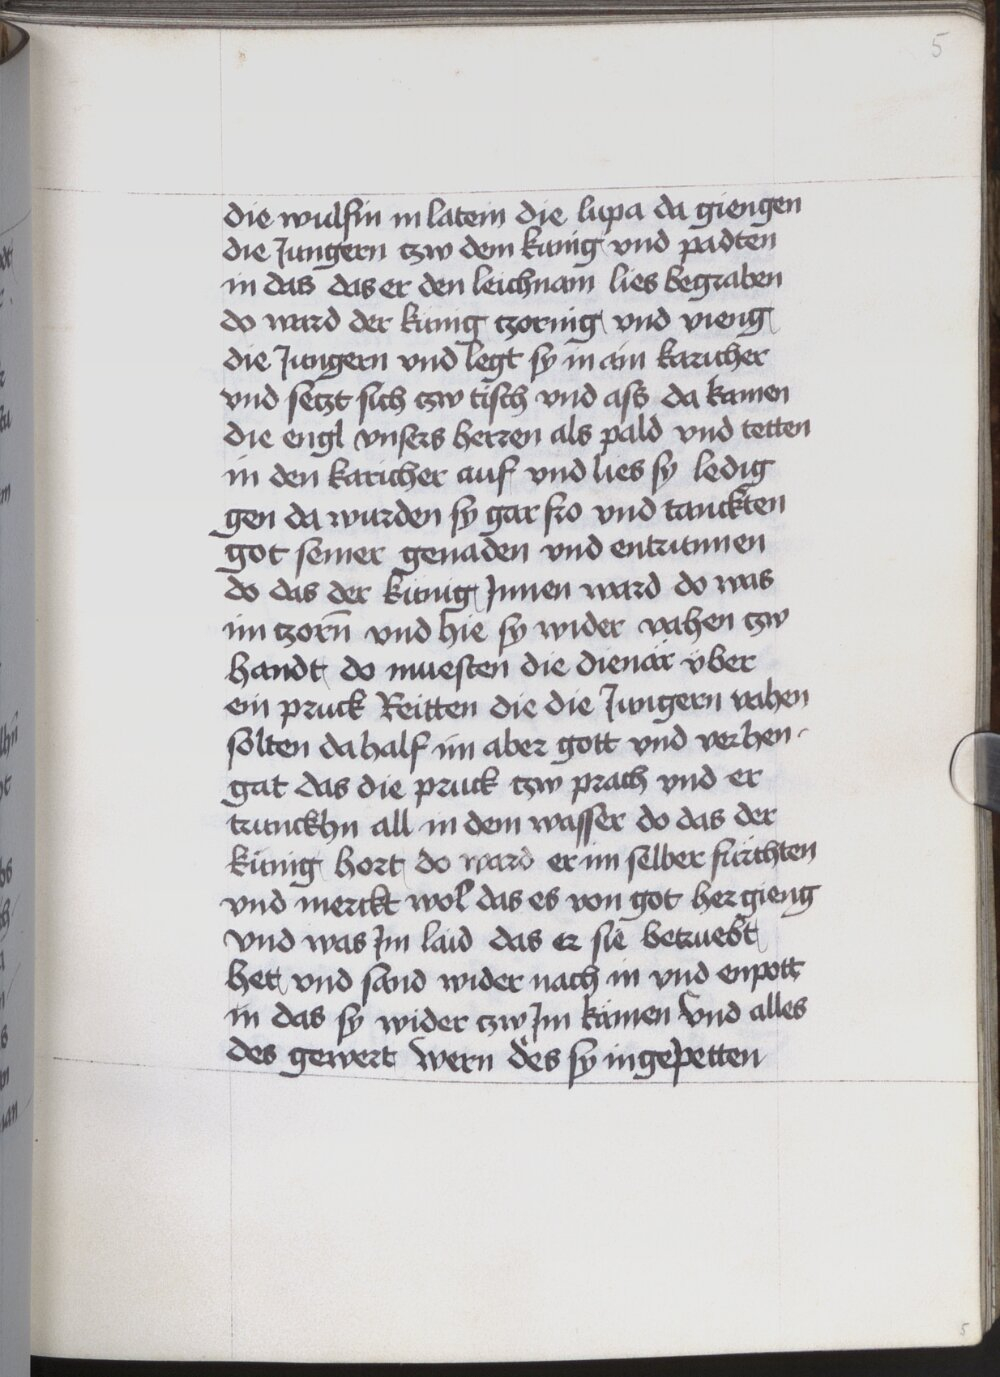 5
die wulfin in latein die lupa da giengen
die Jungern czw dem kunig vnd padten
in das das er den leichnam lies begraben
do ward der kunig czornig vnd vieng
die Jungern vnd legt sy in ain karicher
vnd seczt sich czw tisch vnd ass da kamen
die engl vnsers herren als pald vnd tetten
in den karicher auf vnd lies sy ledig
gen da wurden sy gar fro vnd tanckten
got seiner genaden vnd entrunnen
do das der kunig Jnnen ward do was
im czorn̄ vnd hie sy wider vahen czw
handt do muesten die dienär vber
ein pruck Reitten die die Jungern vahen
solten da half im aber gott vnd verhen-
gat das die pruck czw prach vnd er
trunckhn all in dem wasser do das der
künig hort do ward er im selber fürchten
vnd merckt wol das es von got her gieng
vnd was Jm laid das er sie betruebt
het vnd sand wider nach in vnd enpott
in das sy wider czw Jm kämen vnd alles
des gewert wern des sy in gepetten
5